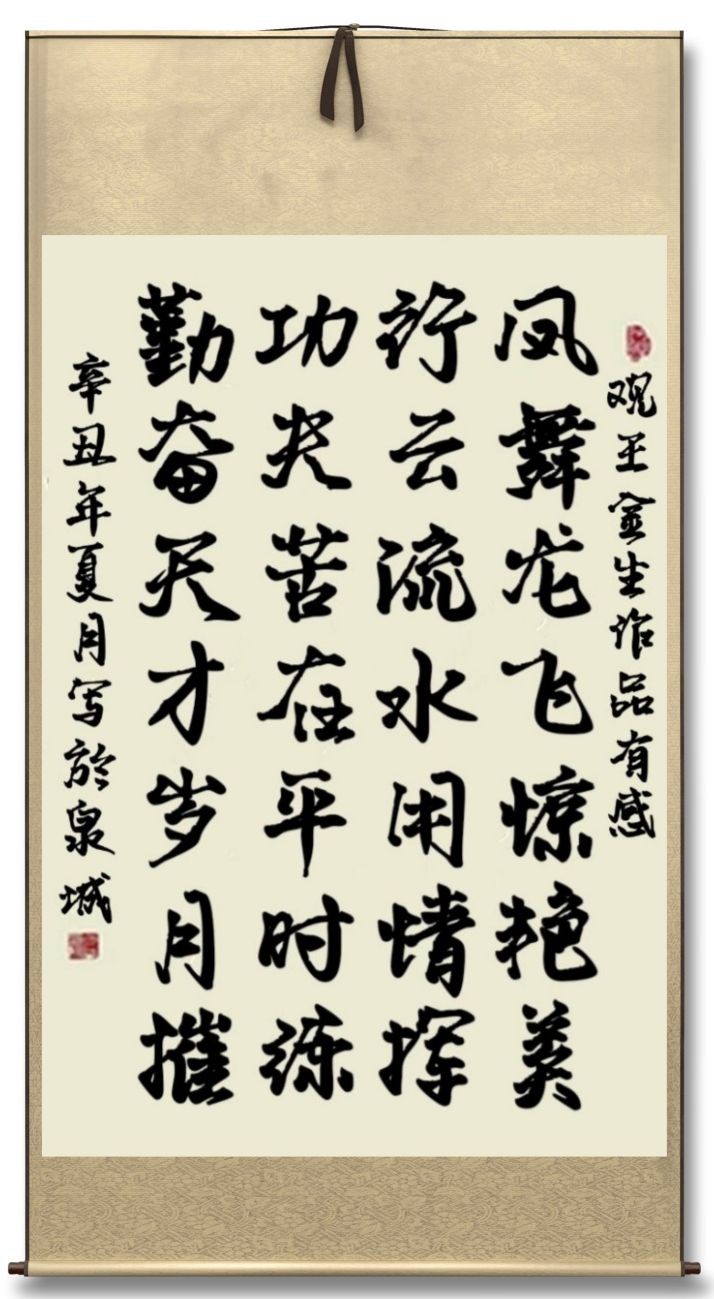 观王金生作品有感
凤舞龙飞惊艳美
行云流水闲情挥
功夫苦在平时练
勤奋天才岁月摧
辛丑年夏月写於泉城